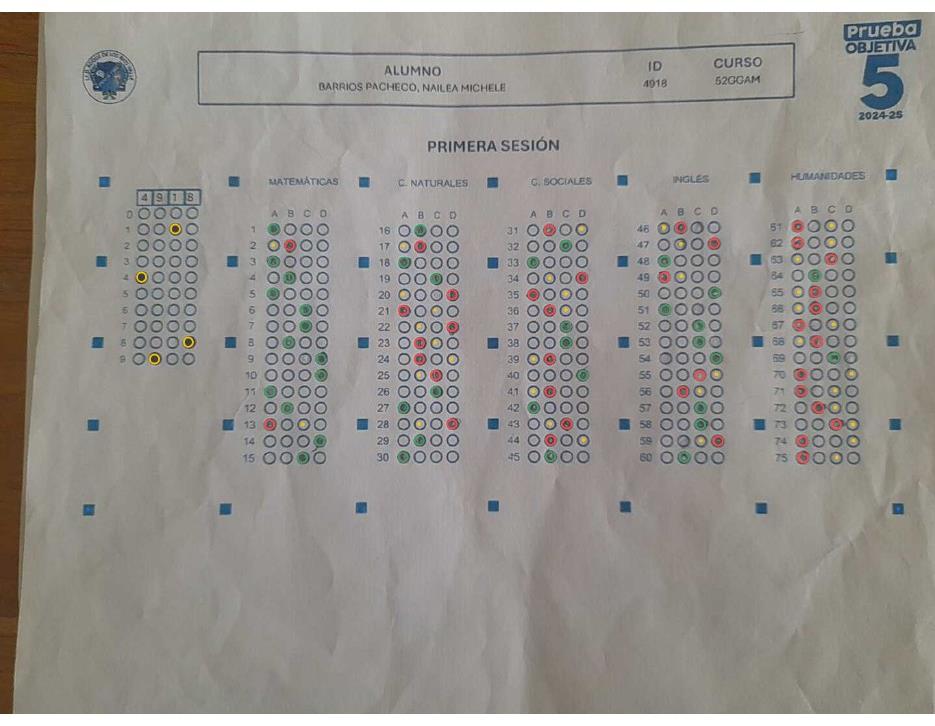 Prueba
OBJETIVA
5
2024-25
ALUMNO
BARRIOS PACHECO, NAILEA MICHELE
ID
4918
CURSO
52GGAM
PRIMERA SESIÓN
4 9 1 8
0
1
2
3
4
5
6
7
8
9
MATEMÁTICAS
A B C D
1
2
3
4
5
6
7
8
9
10
11
12
13
14
15
C. NATURALES
A B C D
16
17
18
19
20
21
22
23
24
25
26
27
28
29
30
C. SOCIALES
A B C D
31
32
33
34
35
36
37
38
39
40
41
42
43
44
45
INGLÉS
A B C D
46
47
48
49
50
51
52
53
54
55
56
57
58
59
60
HUMANIDADES
A B C D
61
62
63
64
65
66
67
68
69
70
71
72
73
74
75